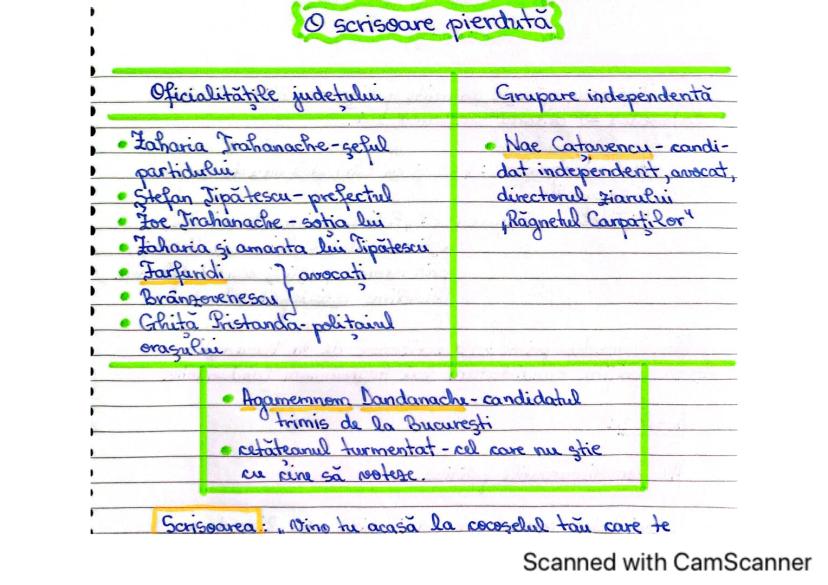 O scrisoare pierdută
Oficialitățile județului
Grupare independentă
• Zaharia Trahanache - șeful
partidului
• Ștefan Tipătescu - prefectul
• Zoe Trahanache - soția lui
• Zaharia și amanta lui Tipătescu
• Farfuridi } avocați
• Brânzovenescu
• Ghiță Pristanda - polițaiul
orașului
• Nae Cațavencu - candi-
dat independent, avocat,
directorul ziarului
„Răgnetul Carpaților"
• Agamemnom Dandanache - candidatul
trimis de la București
• cetățeanul turmentat - cel care nu știe
cu cine să voteze.
Scrisoarea: „Vino tu acasă la cocoșelul tău care te
Scanned with CamScanner